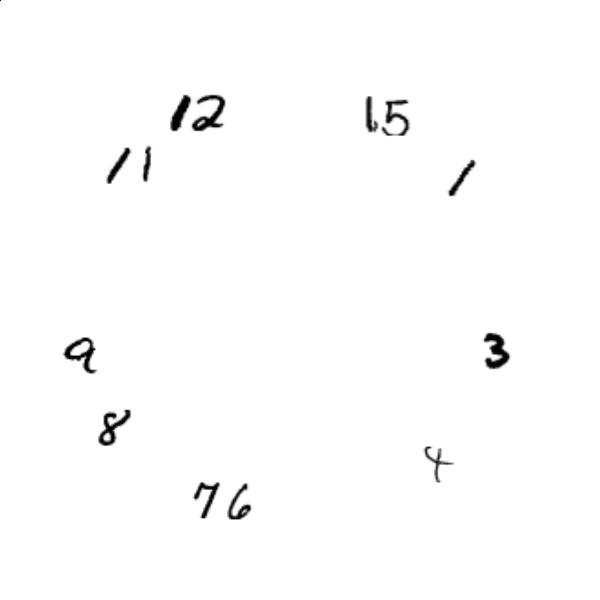 12 15
11 1
9 3
8 4
7 6